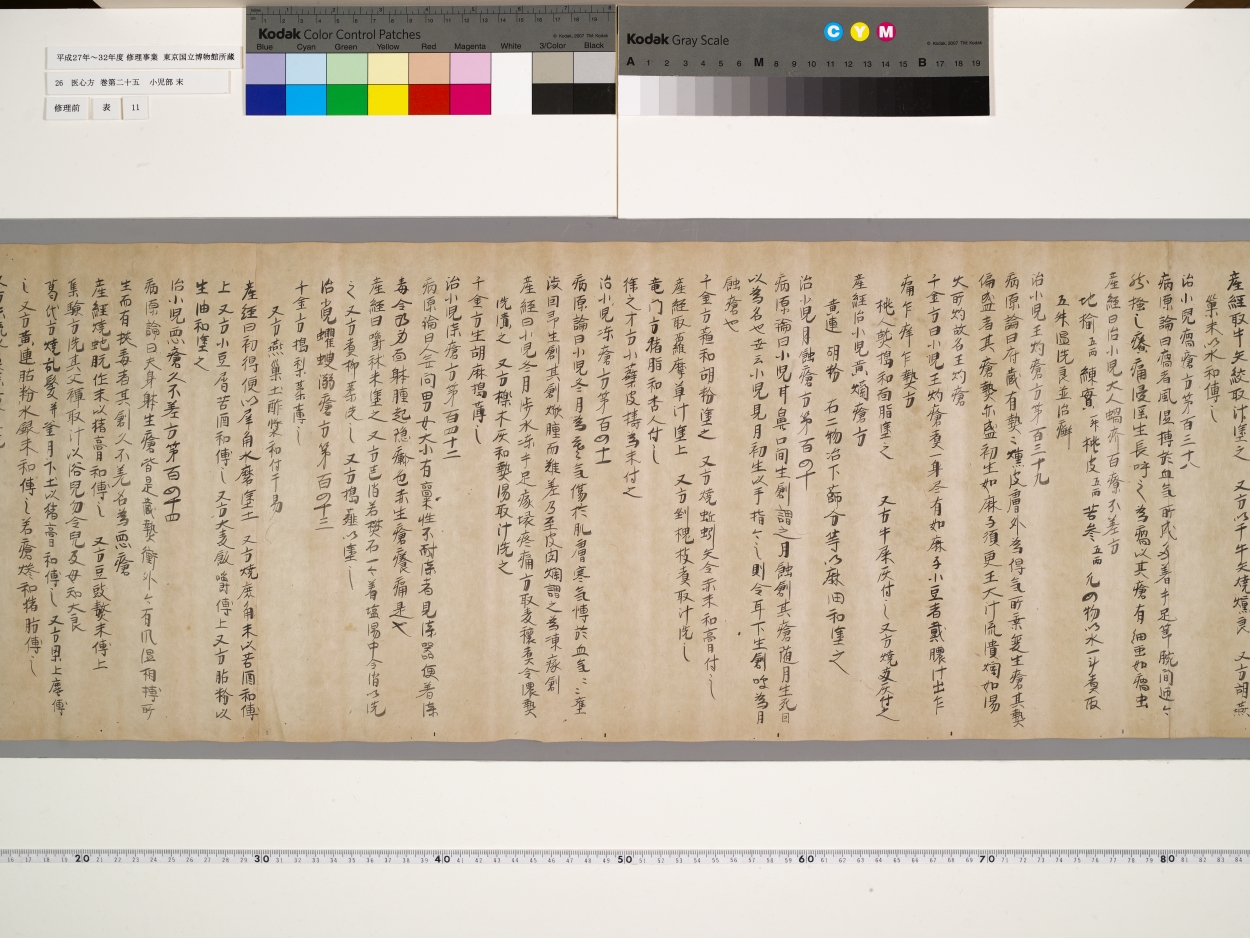 平成27年〜32年度 修理事業 東京国立博物館所蔵
26 医心方 巻第二十五 小児部 末
修理前 表 11
Kodak Color Control Patches
© Kodak, 2007 TM: Kodak
Blue Cyan Green Yellow Red Magenta White 3/Color Black
Kodak Gray Scale
C Y M
© Kodak, 2007 TM: Kodak
A 1 2 3 4 5 6 M 8 9 10 11 12 13 14 15 B 17 18 19
産經取牛矢絞取汁塗之 又方以千牛矢燒燻良 又方胡燕
巢末以水和傅之
治小兒瘑瘡方第百三十八
病源論曰瘑者風濕搏於血氣所成多著手足
産經曰治小兒大人瘑疥百療不差方
地榆五両 練實 桃皮五両 苦參五両 凡四物以水一斗煮取
五升温洗良並治癬
治小兒王灼瘡方第百三十九
病源論曰府藏有熱々熏皮膚外為得氣所乗變生瘡其熱
偏盛者其瘡熱亦盛初生如麻子須更王大汁流潰爛如湯
火所灼故名王灼瘡
千金方曰小兒王灼瘡一身盡有如麻子小豆者戴膿汁出乍
痛乍癢乍熱方
桃人熟搗和面脂塗之 又方牛屎灰付之 又方燒灰付之
産經治小兒黄爛瘡方
黄連 胡粉 右二物冶下篩分等以麻油和塗之
治小兒月蝕瘡方第百四十
病源論曰小兒耳鼻口間生創謂之月蝕創其瘡随月生死因
以為名也世云小兒見月初生以手指々之則令耳下生創故為月
蝕瘡也
千金方 和胡粉塗之 又方燒蚯蚓矢令赤末和膏付之
産經取蘿摩草汁塗上 又方剉槐枝煮取汁洗之
竜門方猪脂和杏人付之
徐之才方小蘗皮擣為末付之
治小兒凍瘡方第百四十一
病源論曰小兒冬月為寒氣傷於肌膚寒氣搏於血氣々壅
澁因即生創其創焮腫而難差乃至皮肉爛謂之為凍瘃創
産經曰小兒冬月歩水凍手足瘃壊疼痛方取麦穰煮令濃熱
洗漬之 又方櫟木灰和熱湯取汁洗之
千金方生胡麻搗薄之
治小兒漆瘡方第百四十二
病源論曰人無問男女大小有禀性不耐漆者見漆器便著漆
毒令乃 面躰腫起隱癬也赤生瘡癢痛是也
産經曰嚼秫米塗之 又方 若礬石一合著塩湯中令消以洗
之 又方煮柳葉洗之 又方搗薤以塗之
治小兒蠼螋溺瘡方第百四十三
千金方搗梨葉薄之
又方燕巢土酢漿和付干易
産經曰初得便以犀角水磨塗上 又方燒鹿角末以苦酒和傅
上 又方小豆屑苦酒和傅之 又方大麦飯嚼傅上 又方胡粉以
生油和塗之
治小兒惡瘡久不差方第百四十四
病源論曰夫身躰生瘡皆是藏熱衝外々有風濕相搏所
生而有挾毒者其創久不差名為惡瘡
産經燒蛇蛻作末以猪膏和傅之 又方豆豉熬末傅上
集驗方洗其父褌取汁以浴兒勿令兒及母知大良
葛氏方燒乱髮并釜月下土以猪膏和傅之 又方梁上塵傅
之 又方黄連胡粉水銀末和傅之若瘡燥和猪肪傅之